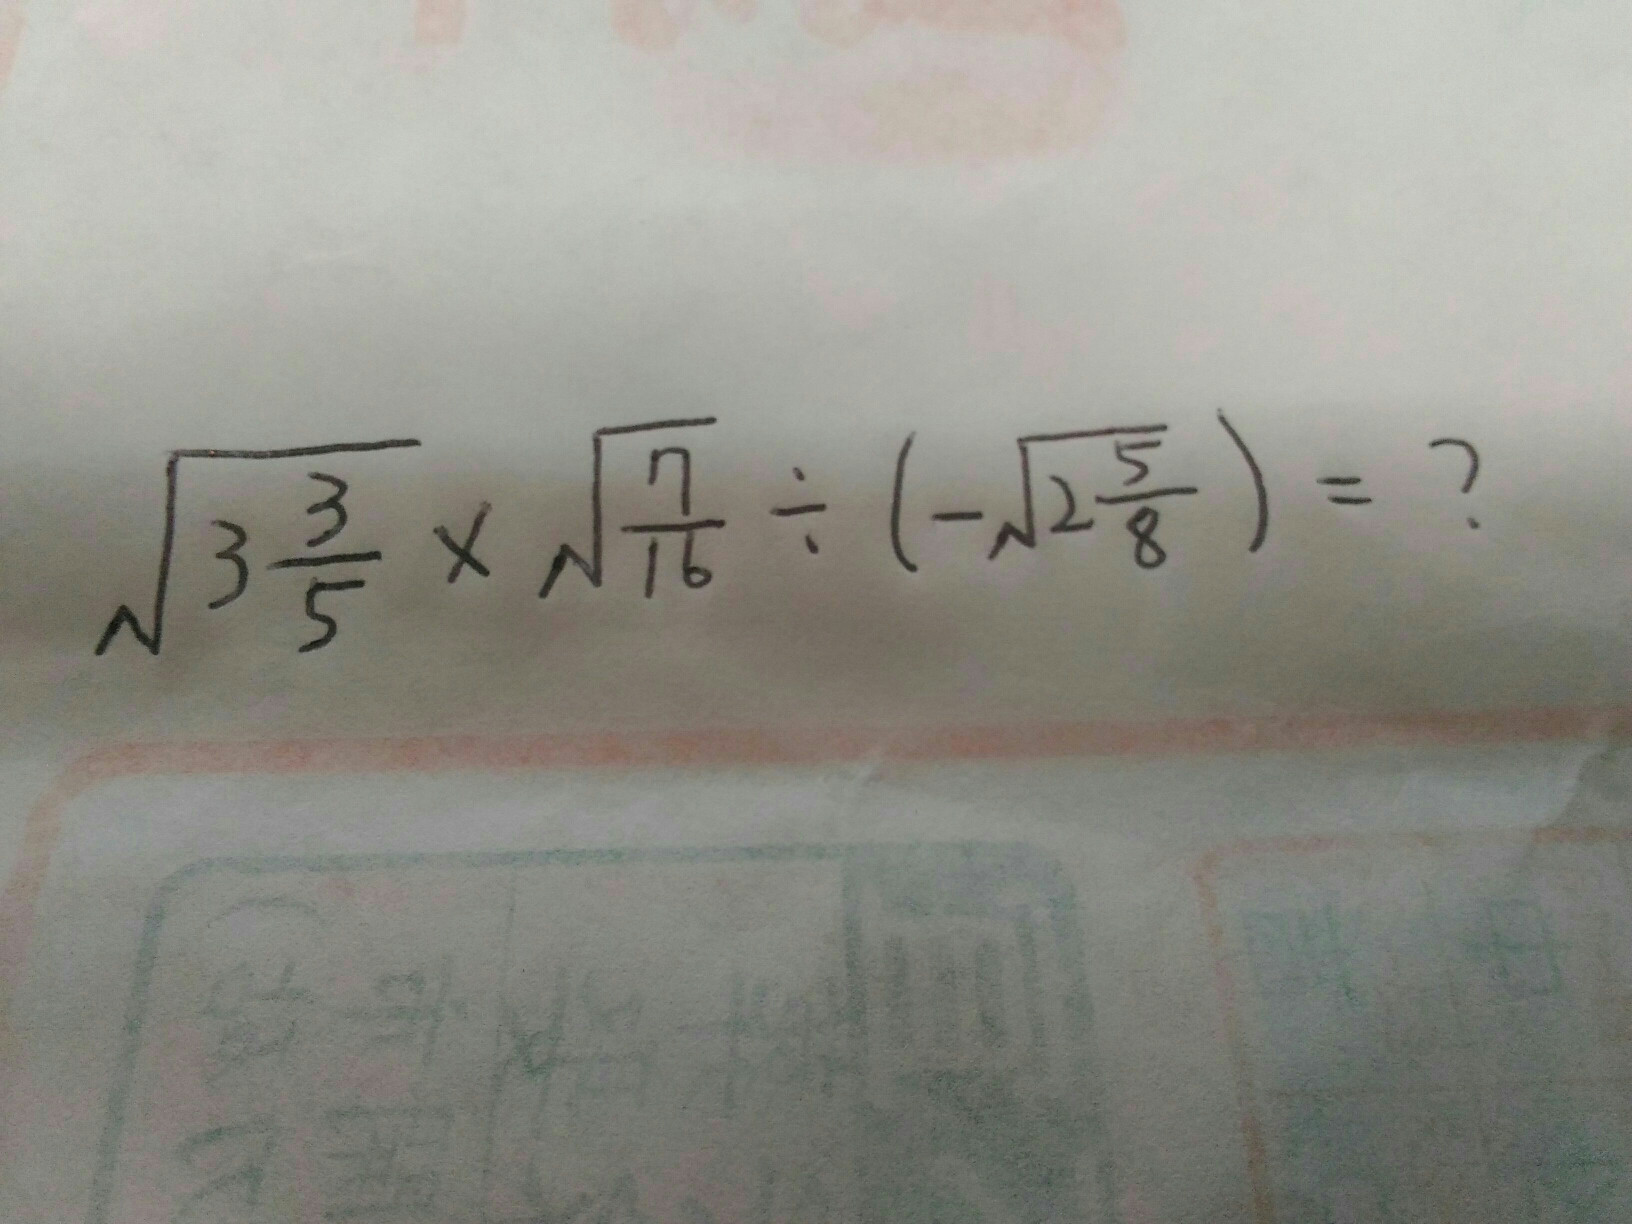 √(3 3/5) × √(7/16) ÷ (-√(2 5/8)) = ?